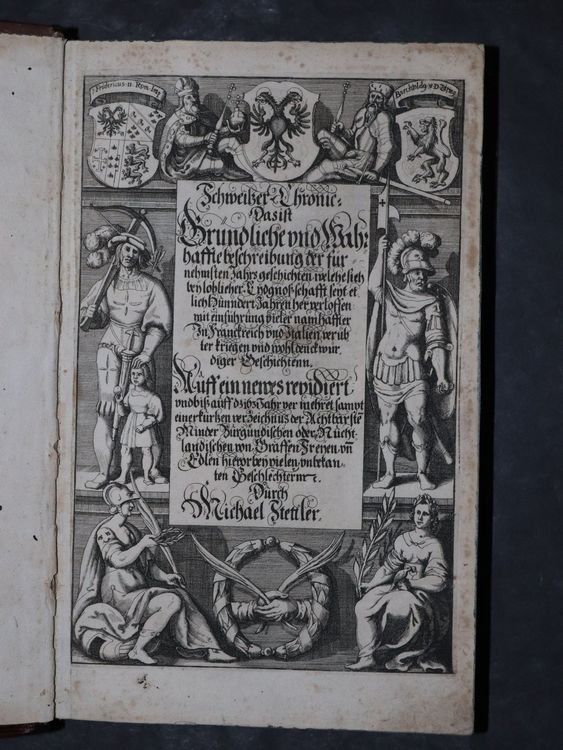 Fridericus II Rom. Imp.
Berchtoldg V D. Zering
Schweitzer-Chronic:
Das ist
Gründliche vnd Wahr-
haffte beschreibung der für
nehmsten Jahrs geschichten welche sich
bey loblicher Eydgnoßschafft seyt et
lich Hundert Jahren her verloffen
mit einführung vieler namhaffter
In Franckreich vnd Italien verüb
ter kriegen vnd wohl denckwür
diger Geschichtenn.
Auff ein newes revidiert
vnd biß auff dz Jahr vermehret sampt
einer kurtzen verzeichnus der Achtbarste
Minder Burgundischen oder Nücht
landischen von Graffen Freyen vn
Edlen hievor bey vielen vnbekan
ten Geschlechternn ꝛc.
Durch
Michael Stettler.